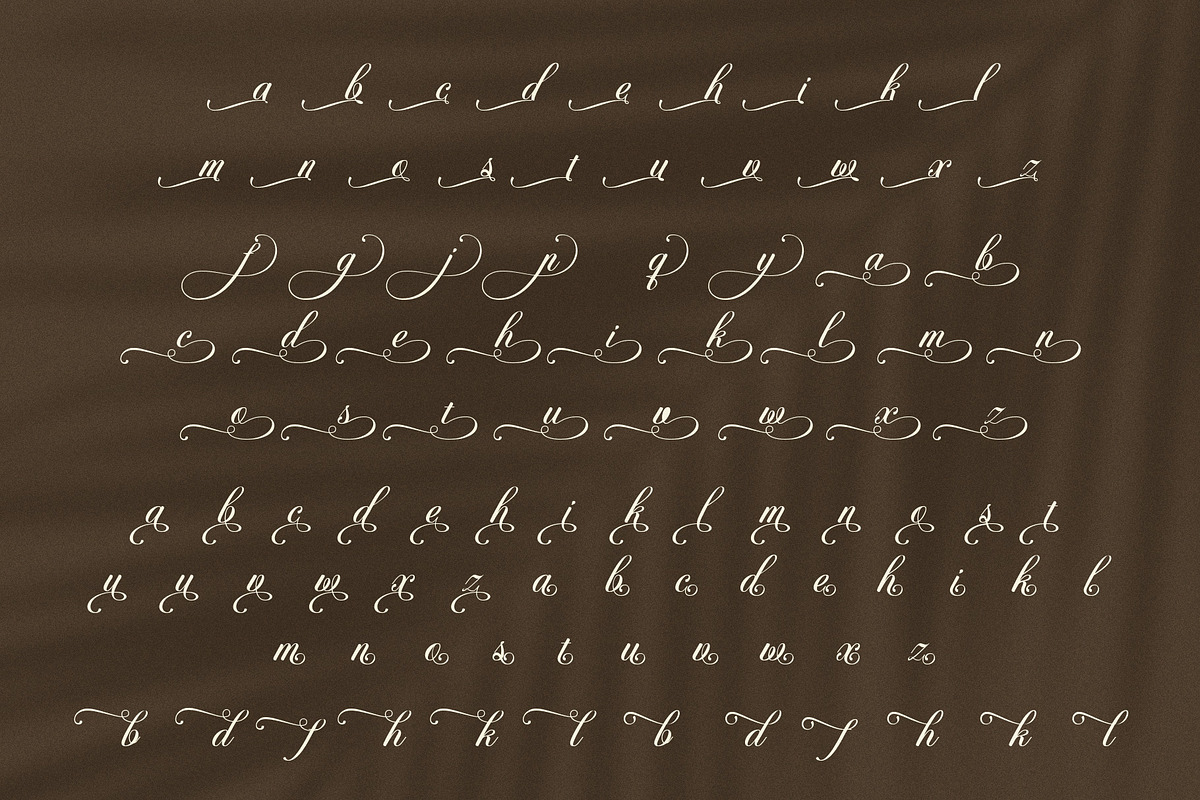 a b c d e h i k l
m n o s t u v w x z
f g j p q y a b
c d e h i k l m n
o s t u v w x z
a b c d e h i k l m n o s t
u u v w x z a b c d e h i k l
m n o s t u v w x z
b d f h k l b d f h k l